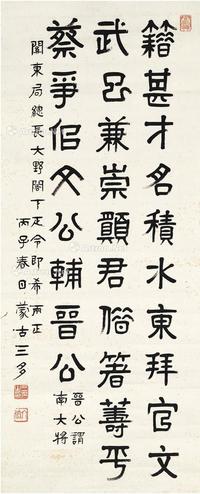 籍甚才名積水東拜官文
武召兼崇顗君俗箸菁平
蔡爭佀文公輔晉公
晉公謂
南大將
關東局總長大野閣下疋令即希兩正
丙子春日蒙古三多